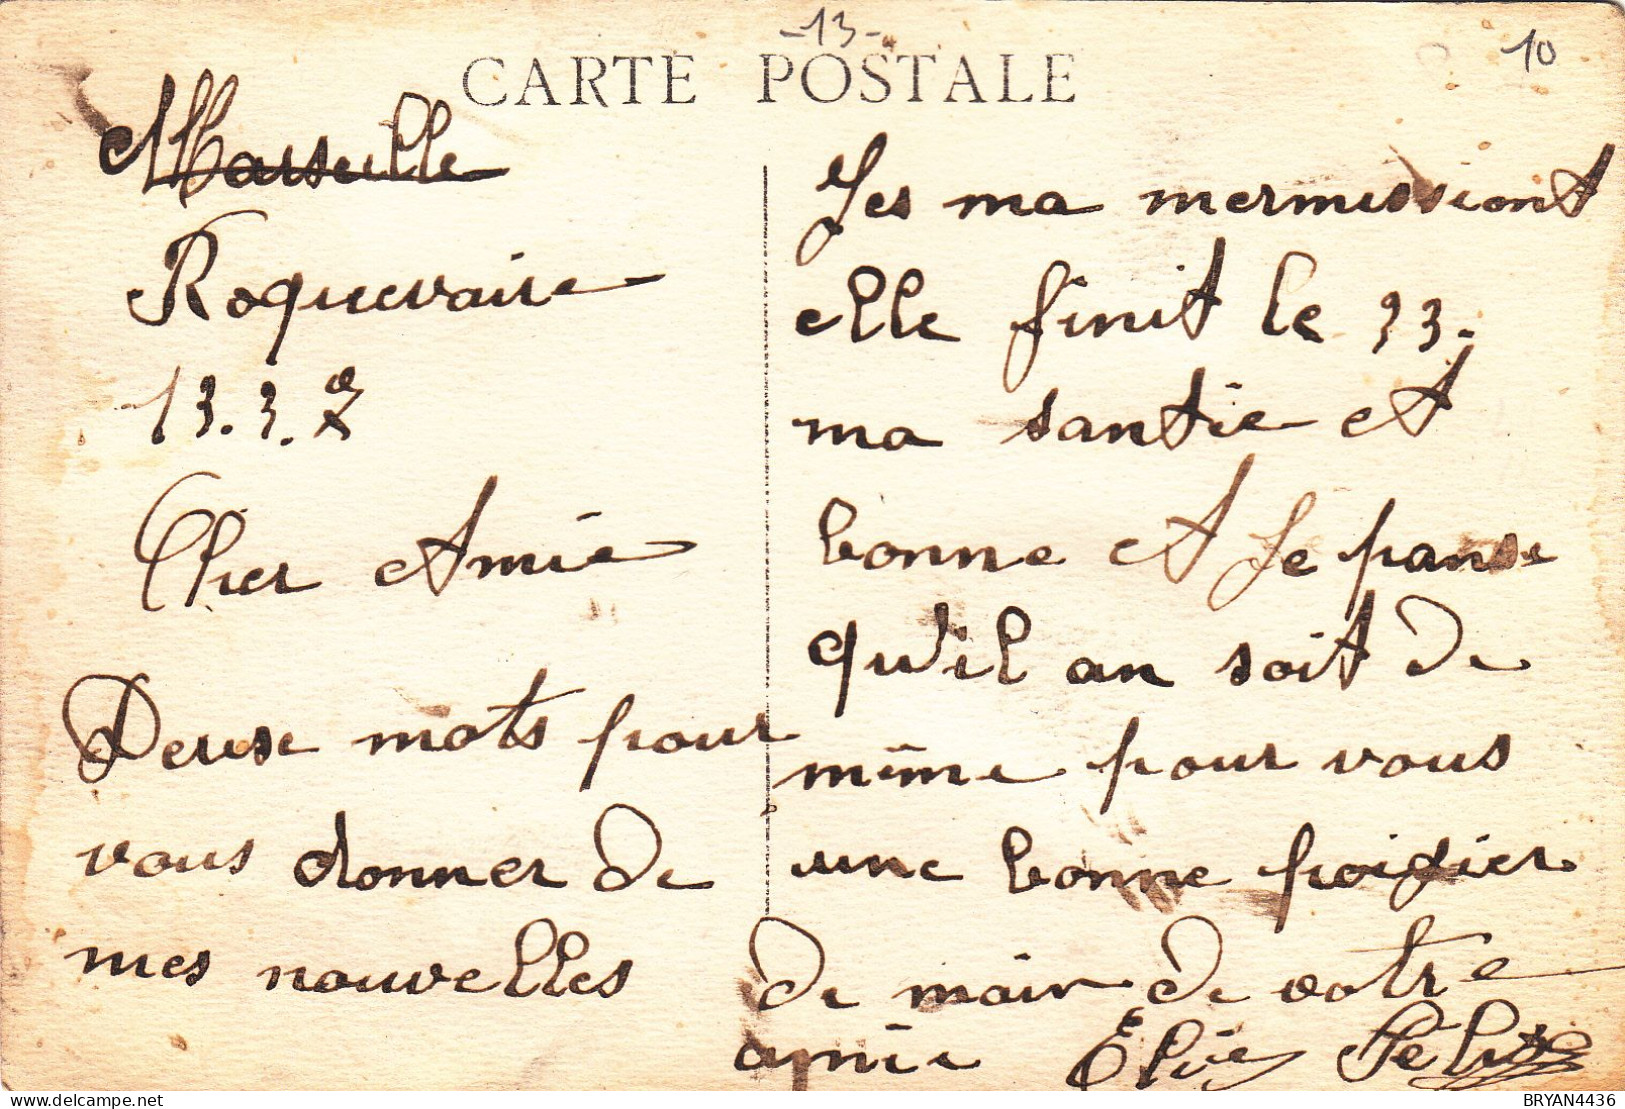 -13-
10
CARTE POSTALE
Marseille
Roquevaire
13.3.
Cher Amie
Deuse mots pour
vous donner de
mes nouvelles
Jes ma mermissiont
elle finit le 33.
ma santie et
bonne et Je panse
qu'il an soit de
même pour vous
une bonne poigier
de main de votre
amie Élie
BRYAN4436